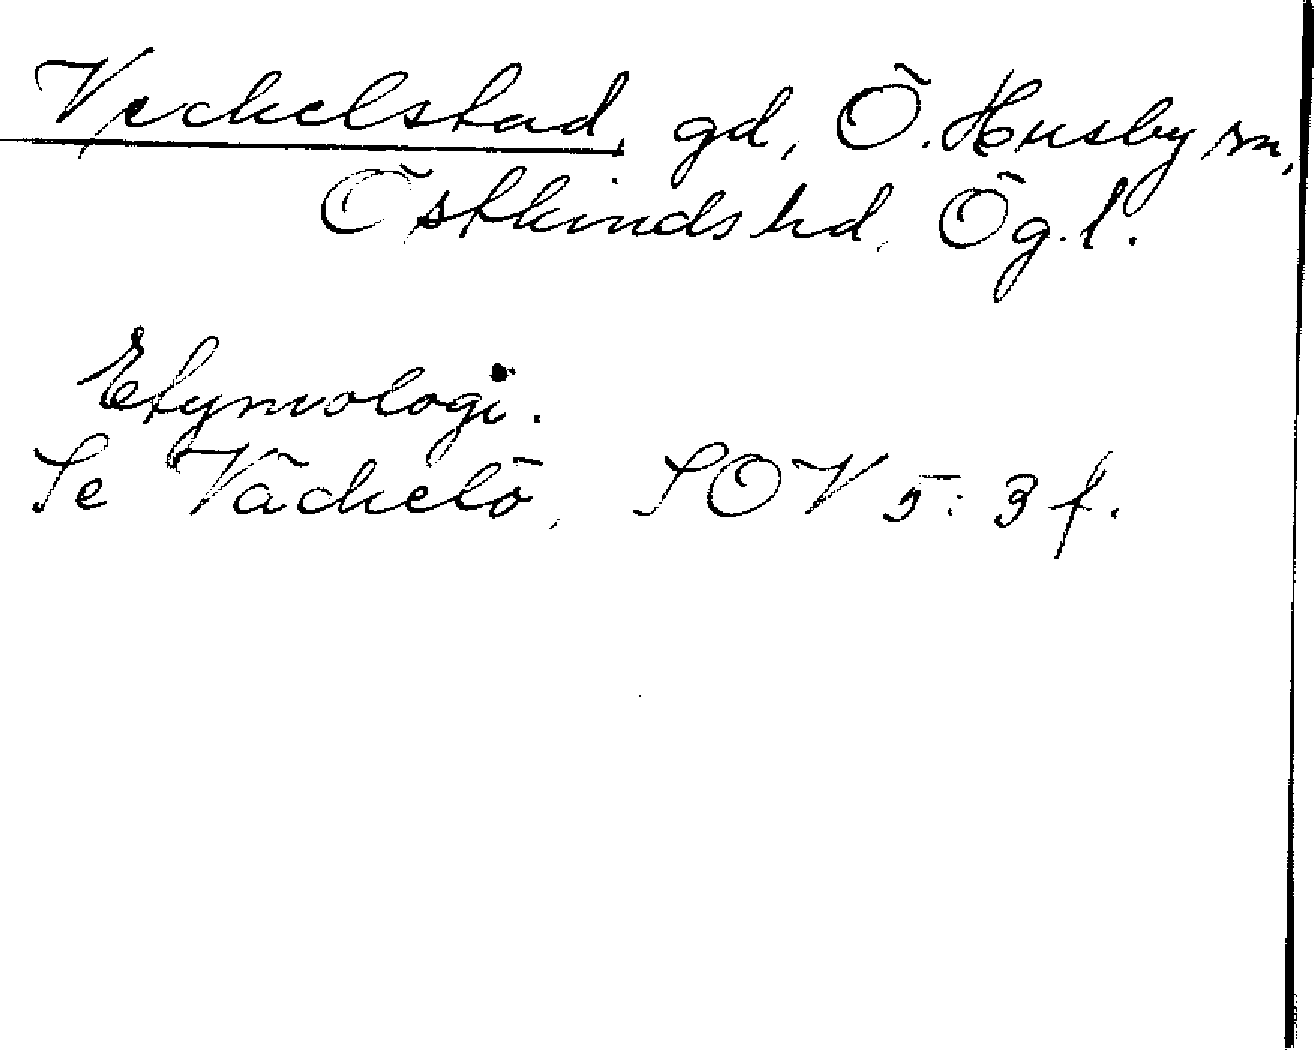 Veckelstad, gd, Ö. Husby sn,
Östkinds hd, Ög. l.
Etymologi.
Se Väckelö, SOV 5: 3 f.